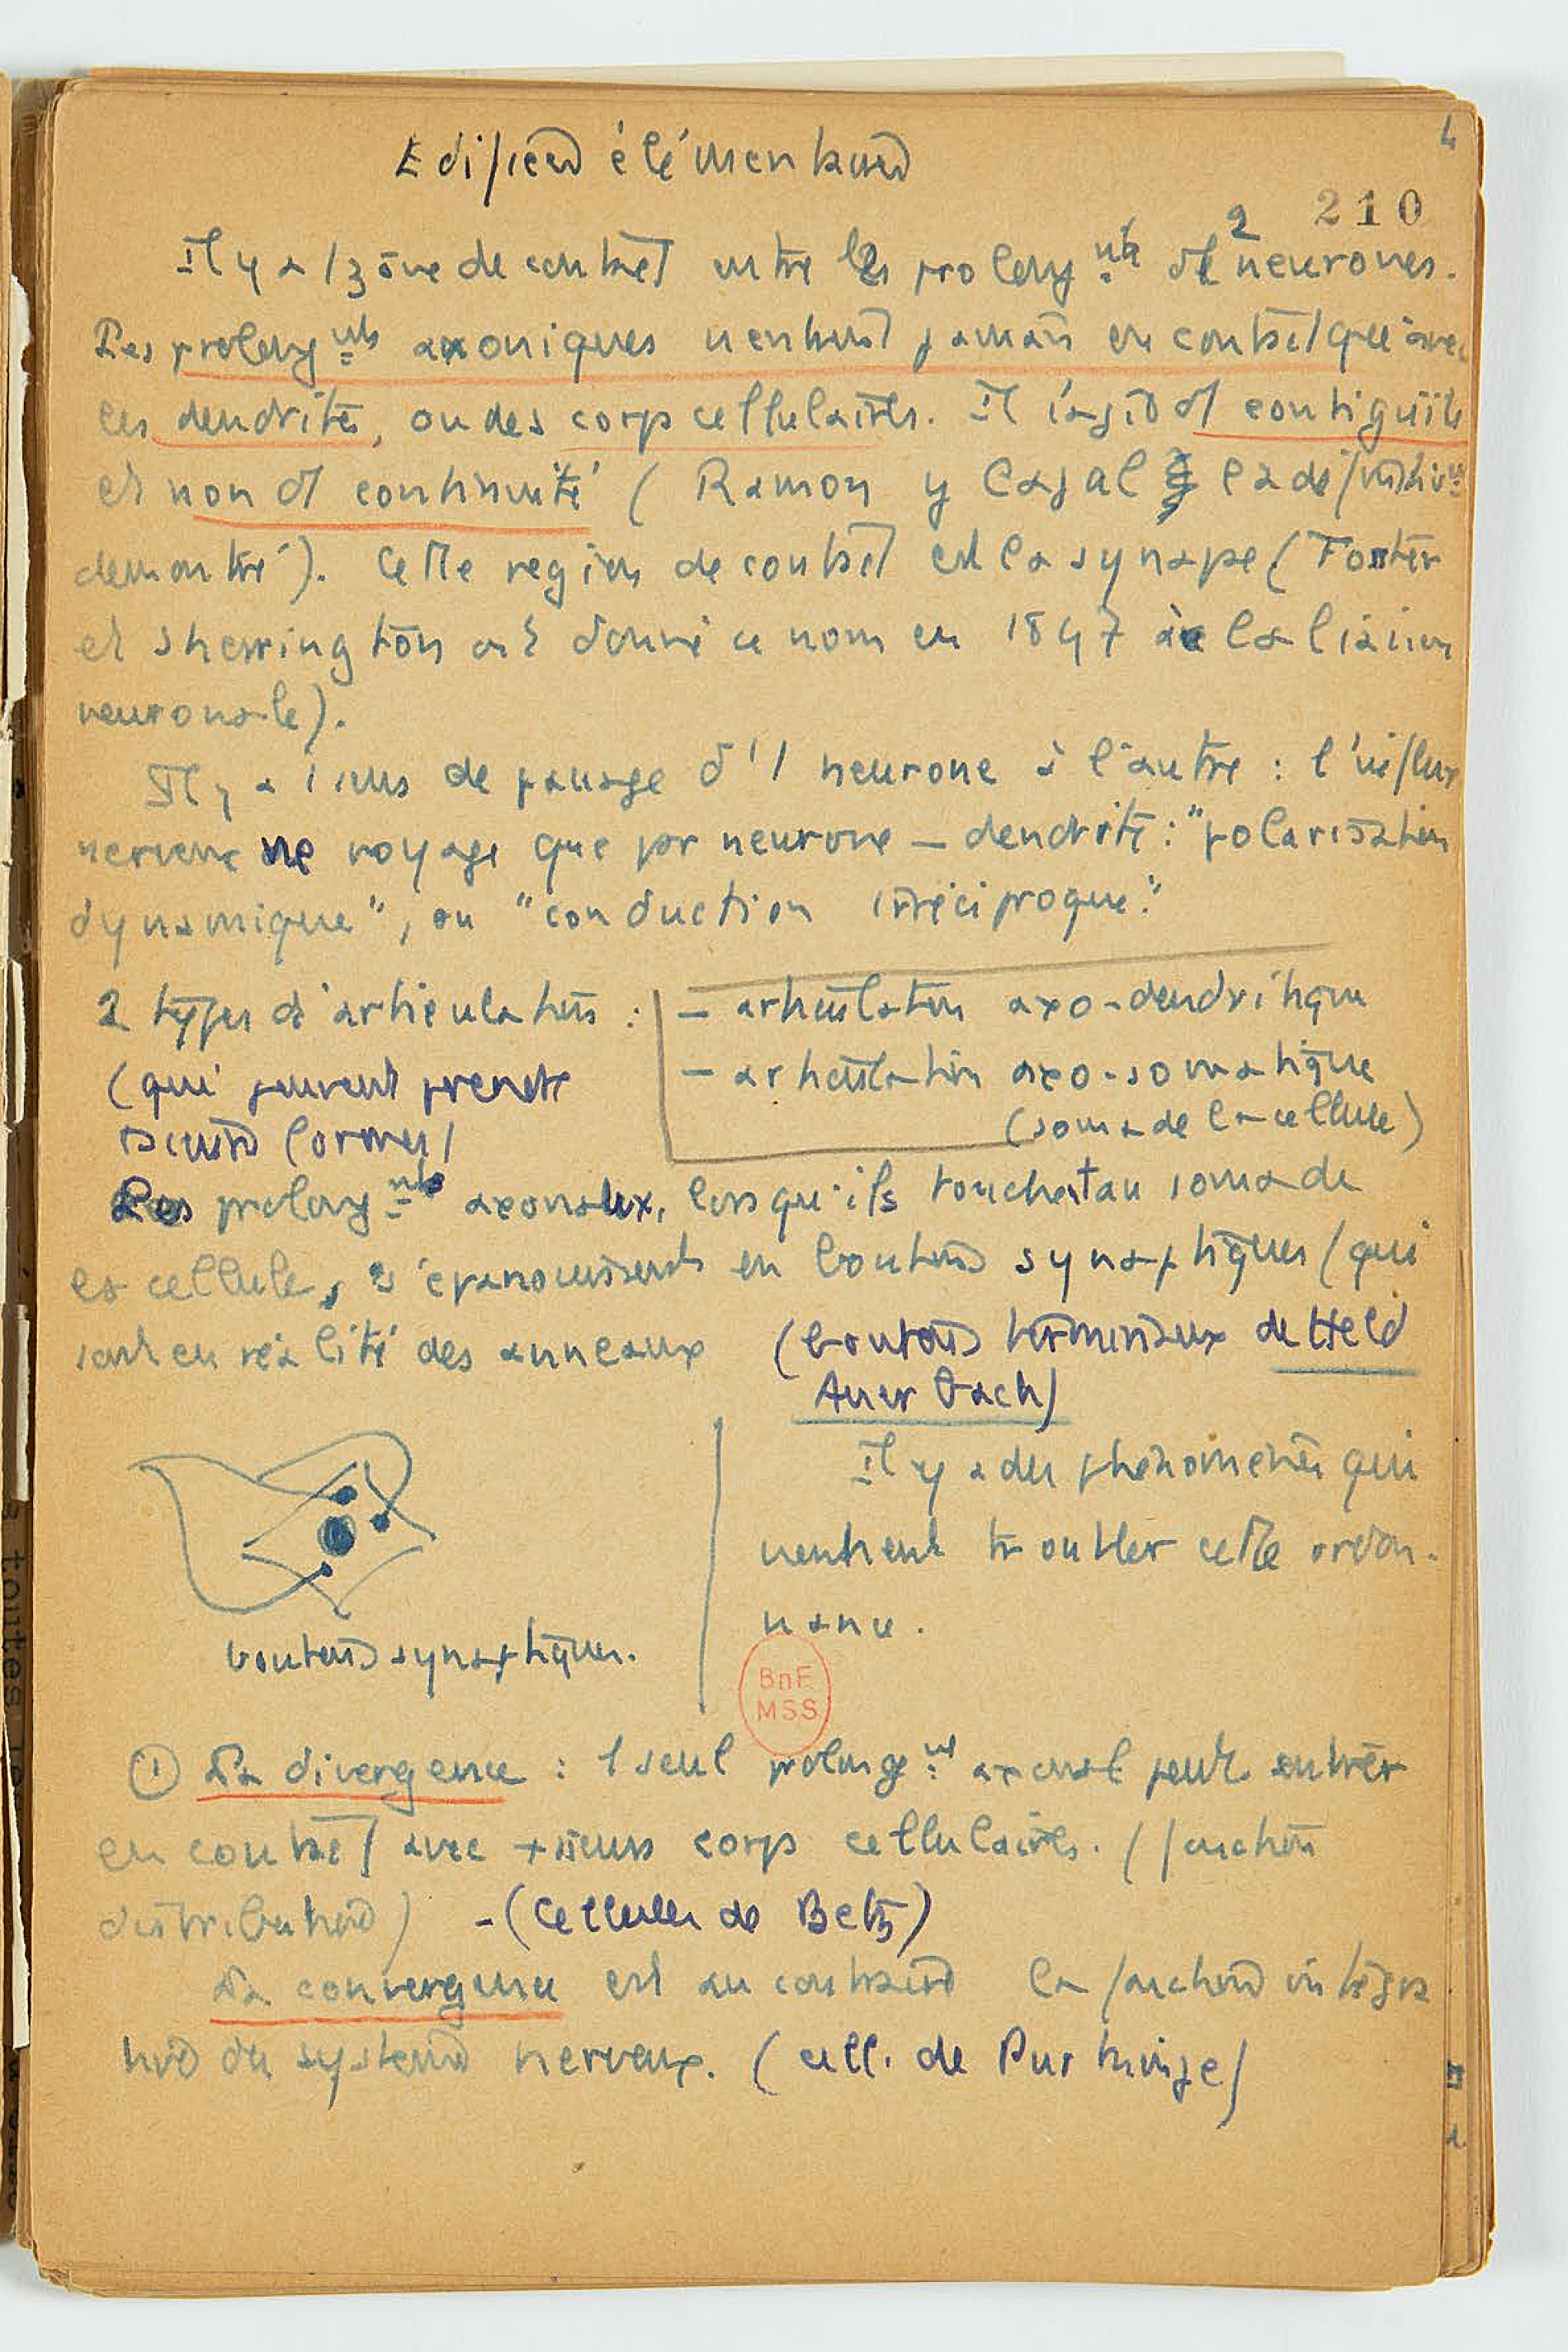 4
Edifices élémentaires
210
Il y a 1 zône de contact entre les prolongnts de 2 neurones.
Les prolongnts axoniques n'entrent jamais en contact qu'avec
les dendrites, ou des corps cellulaires. Il s'agit de contiguïté
et non de continuité (Ramon y Cajal l'a définitivt
démontré). Cette region de contact est la synapse (Foster
et Sherrington ont donné ce nom en 1897 à la liaison
neuronale).
Il y a 1 sens de passage d'1 neurone à l'autre : l'influx
nerveux ne voyage que par neurone – dendrite : "polarisation
dynamique", ou "conduction irréciproque."
2 types d'articulations :
(qui peuvent prendre
formes)
– articulation axo-dendritique
– articulation axo-somatique
(soma de la cellule)
Les prolongnts axonaux, lorsqu'ils touchent au soma de
la cellule, s'épanouissent en boutons synaptiques (qui
sont en réalité des anneaux (boutons terminaux de Held
Auerbach)
boutons synaptiques.
Il y a des phénomènes qui
viennent troubler cette ordon-
nance.
BnF
MSS
① La divergence : 1 seul prolongent axonal peut entrer
en contact avec +sieurs corps cellulaires. (fonction
distribution) - (Cellules de Betz)
La convergence est au contraire la fonction intégra
tive du système nerveux. (cell. de Purkinje)